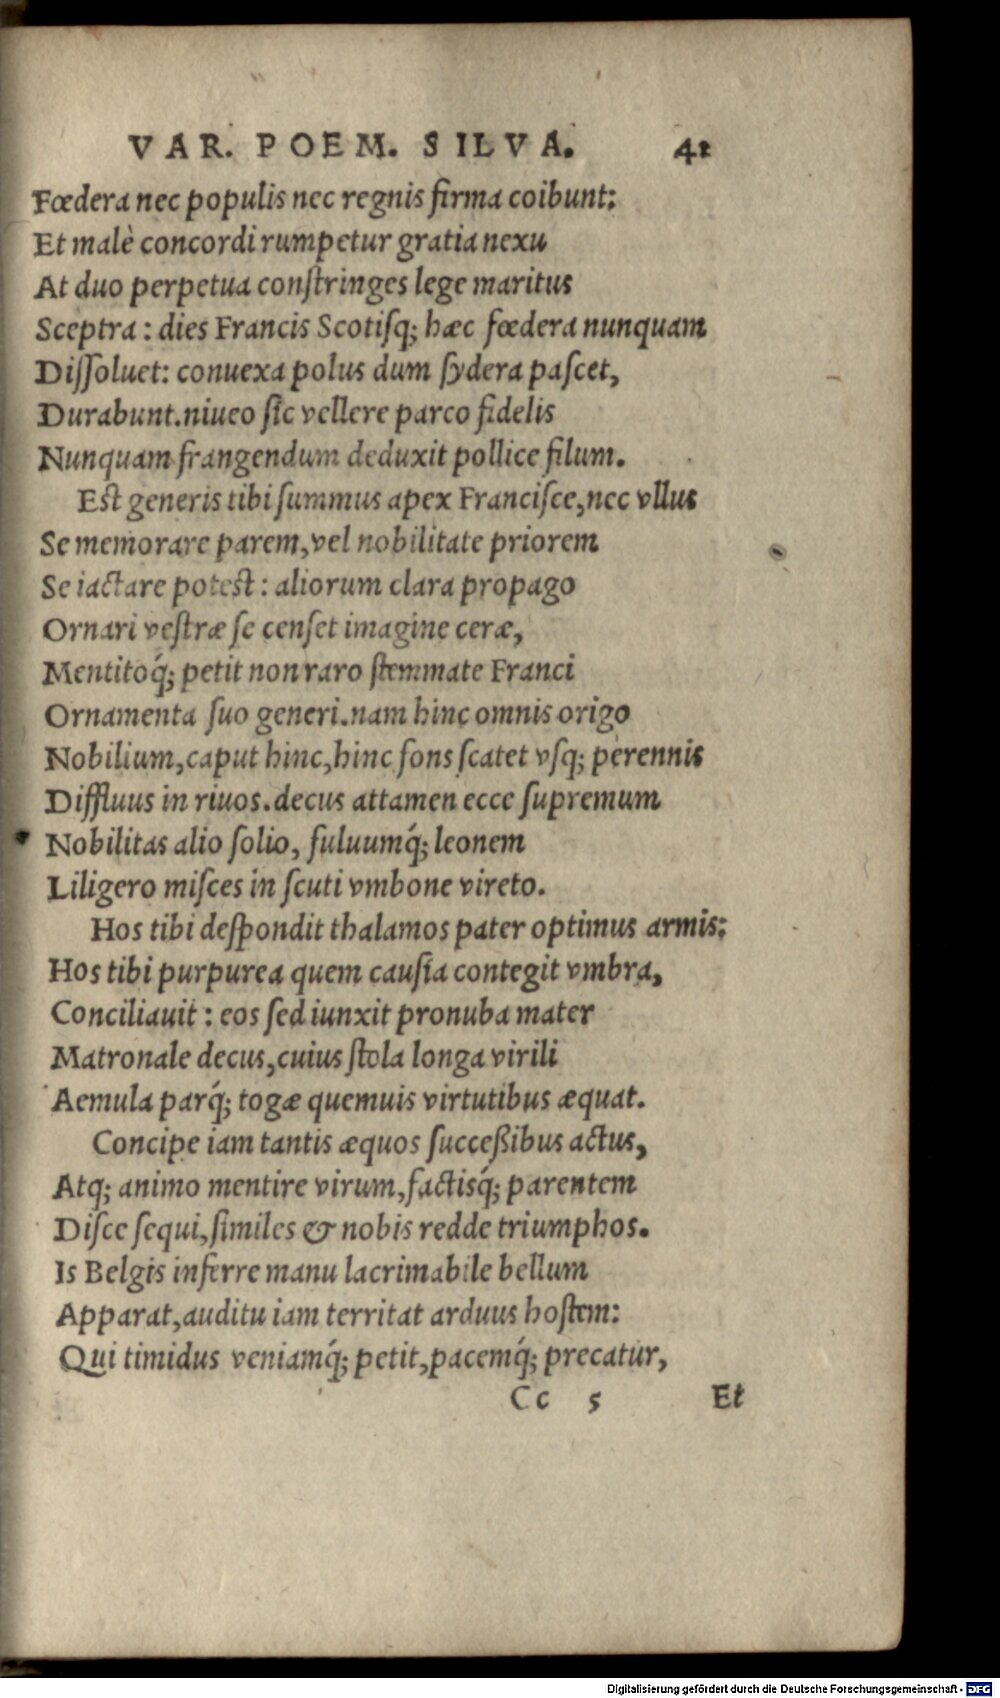 VAR. POEM. SILVA. 41
Fœdera nec populis nec regnis firma coibunt:
Et malè concordi rumpetur gratia nexu
At duo perpetua conſtringes lege maritus
Sceptra: dies Francis Scotiſq; hæc fœdera nunquam
Diſſoluet: conuexa polus dum ſydera paſcet,
Durabunt. niueo ſic vellere parco fidelis
Nunquam frangendum deduxit pollice filum.
Eſt generis tibi ſummus apex Franciſce, nec vllus
Se memorare parem, vel nobilitate priorem
Se iactare poteſt: aliorum clara propago
Ornari veſtræ ſe cenſet imagine ceræ,
Mentitoq́; petit non raro ſtemmate Franci
Ornamenta ſuo generi. nam hinc omnis origo
Nobilium, caput hinc, hinc fons ſcatet vſq; perennis
Diffluus in riuos. decus attamen ecce ſupremum
Nobilitas alio ſolio, fuluumq́; leonem
Liligero miſces in ſcuti vmbone vireto.
Hos tibi deſpondit thalamos pater optimus armis:
Hos tibi purpurea quem cauſia contegit vmbra,
Conciliauit: eos ſed iunxit pronuba mater
Matronale decus, cuius ſtola longa virili
Aemula parq́; togæ quemuis virtutibus æquat.
Concipe iam tantis æquos ſucceßibus actus,
Atq; animo mentire virum, factisq́; parentem
Diſce ſequi, ſimiles & nobis redde triumphos.
Is Belgis inferre manu lacrimabile bellum
Apparat, auditu iam territat arduus hoſtem:
Qui timidus veniamq́; petit, pacemq́; precatur,
Cc 5 Et
Digitalisierung gefördert durch die Deutsche Forschungsgemeinschaft - DFG